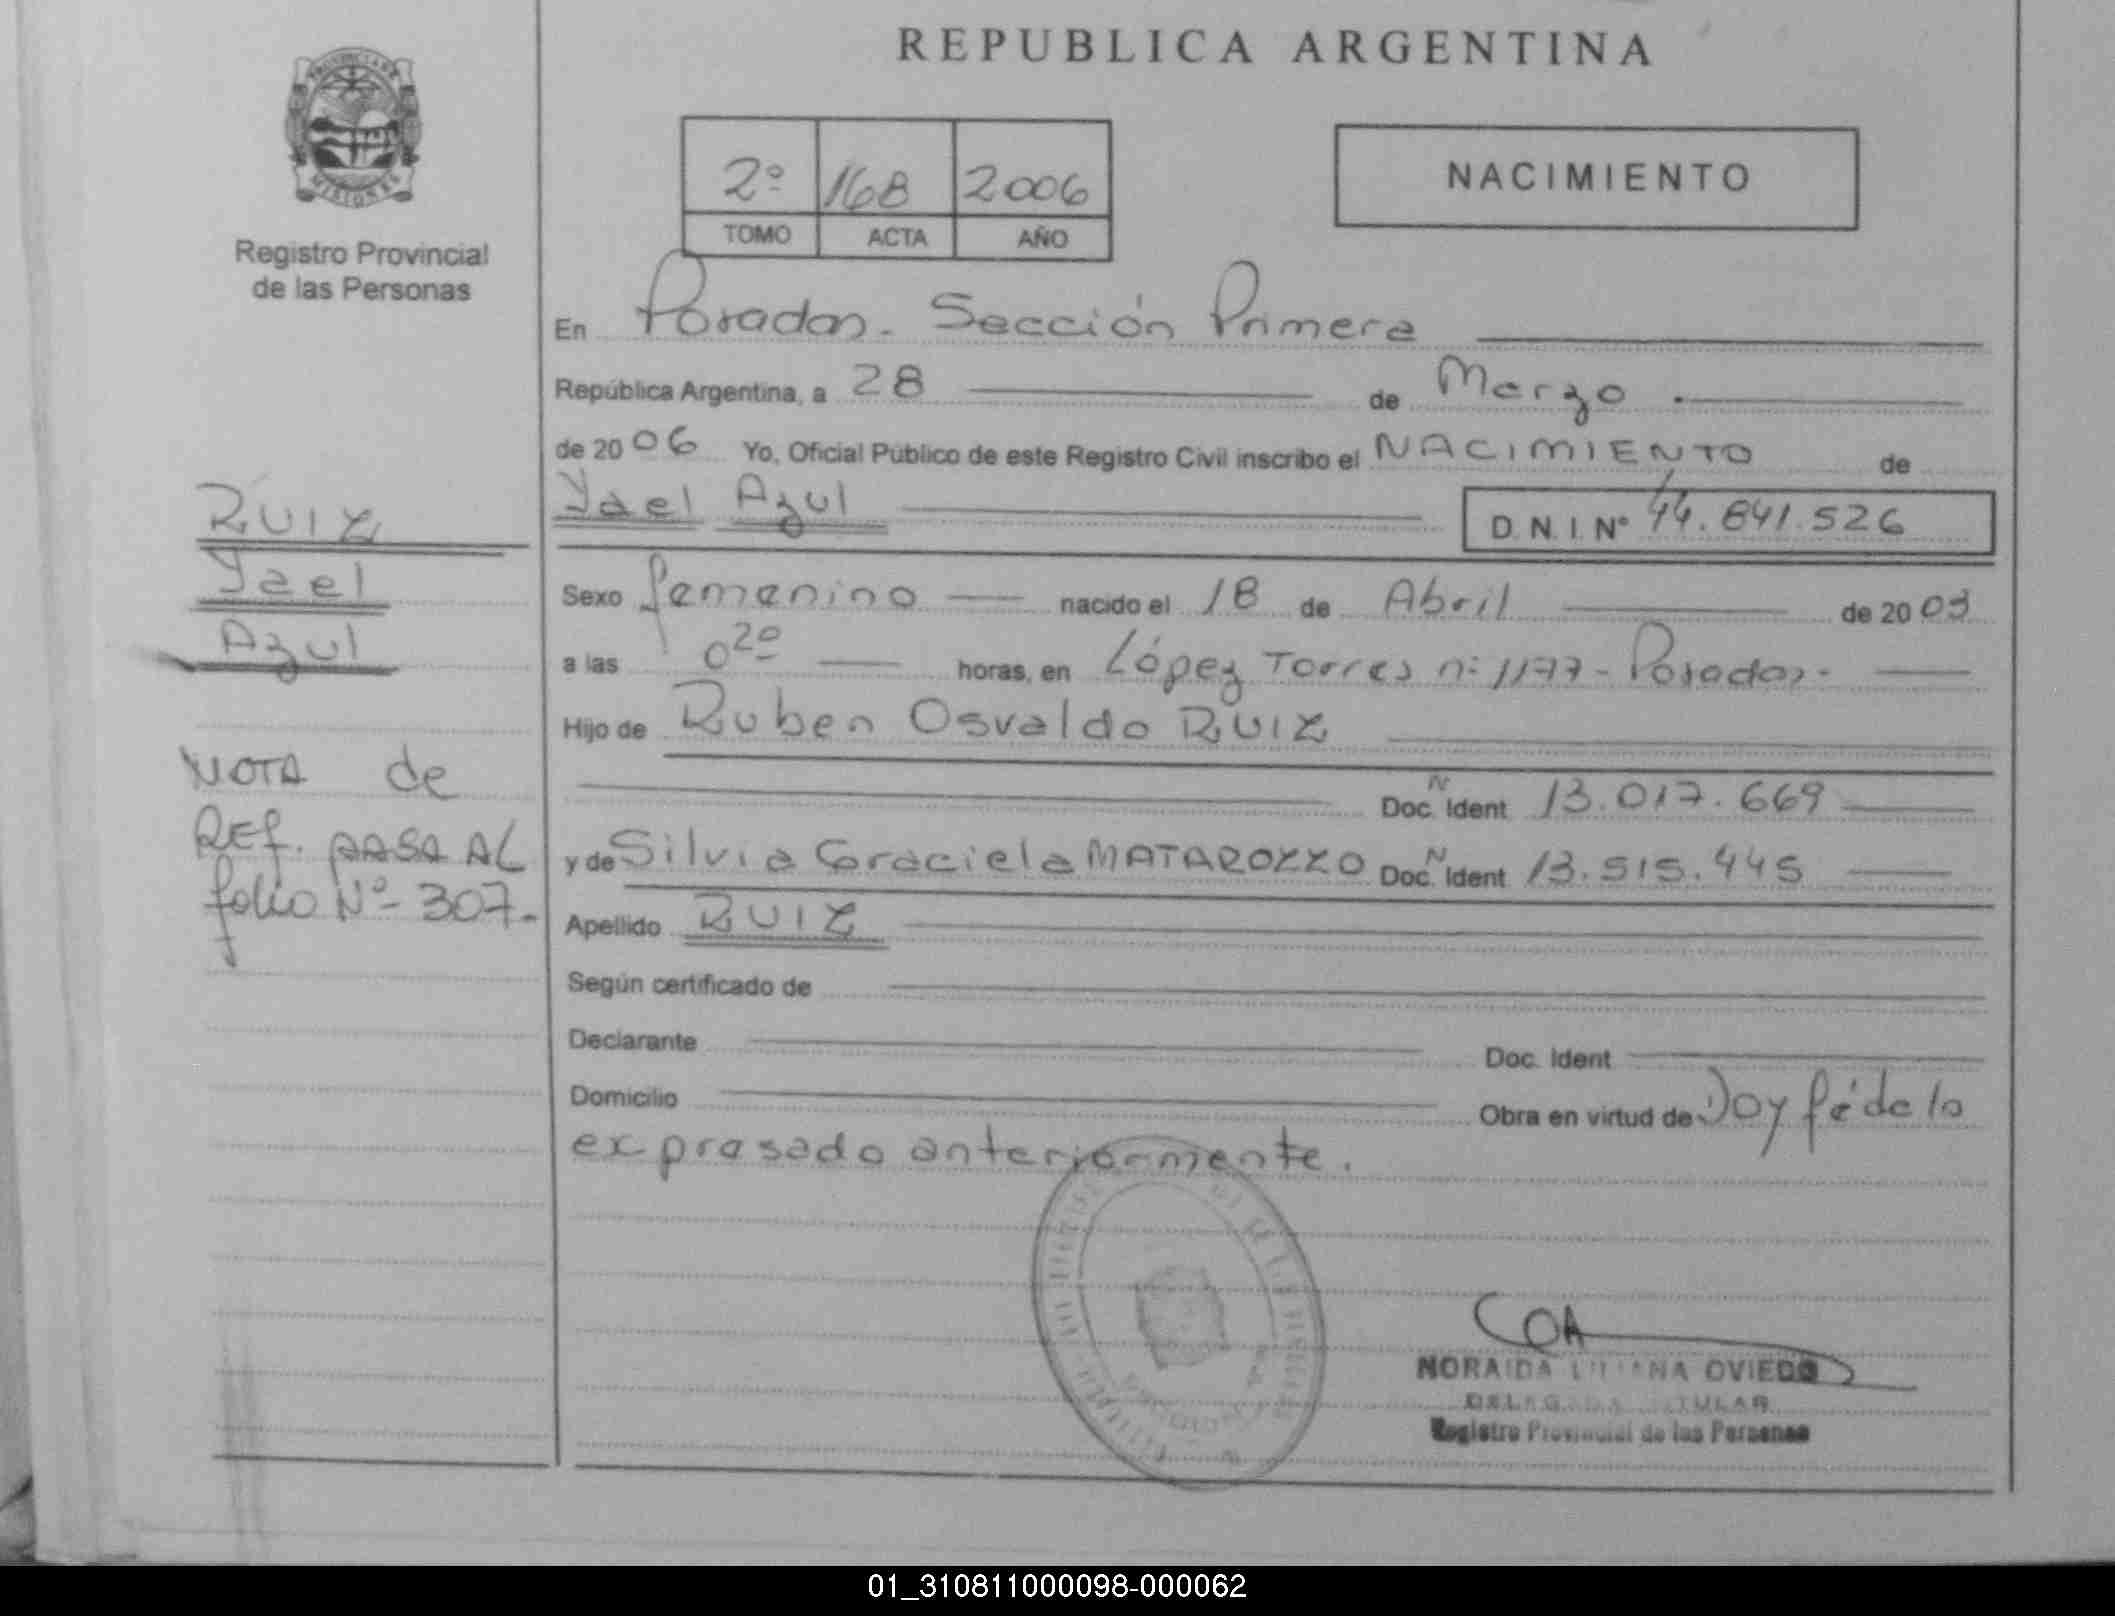 REPUBLICA ARGENTINA
PROVINCIA DE
MISIONES
Registro Provincial
de las Personas
2º 168 2006
TOMO ACTA AÑO
NACIMIENTO
En Posadas - Sección Primera
República Argentina, a 28 de Marzo .
de 2006 Yo, Oficial Público de este Registro Civil inscribo el NACIMIENTO de
Yael Azul D. N. I. Nº 44.841.526
RUIZ
Yael
Azul
Sexo femenino nacido el 18 de Abril de 2003
a las 0²⁰ horas, en López Torres nº 1177 - Posadas -
Hijo de Ruben Osvaldo RUIZ
Doc. Ident Nº 13.017.669
y de Silvia Graciela MATAROZZO Doc. Ident Nº 13.515.445
Apellido RUIZ
NOTA de
REf. PASA AL
folio Nº - 307 -
Según certificado de
Declarante Doc. Ident
Domicilio Obra en virtud de Doy fé de lo
expresado anteriormente.
NORAIDA LILIANA OVIEDO
DELEGADA TITULAR
Registro Provincial de las Personas
01_310811000098-000062